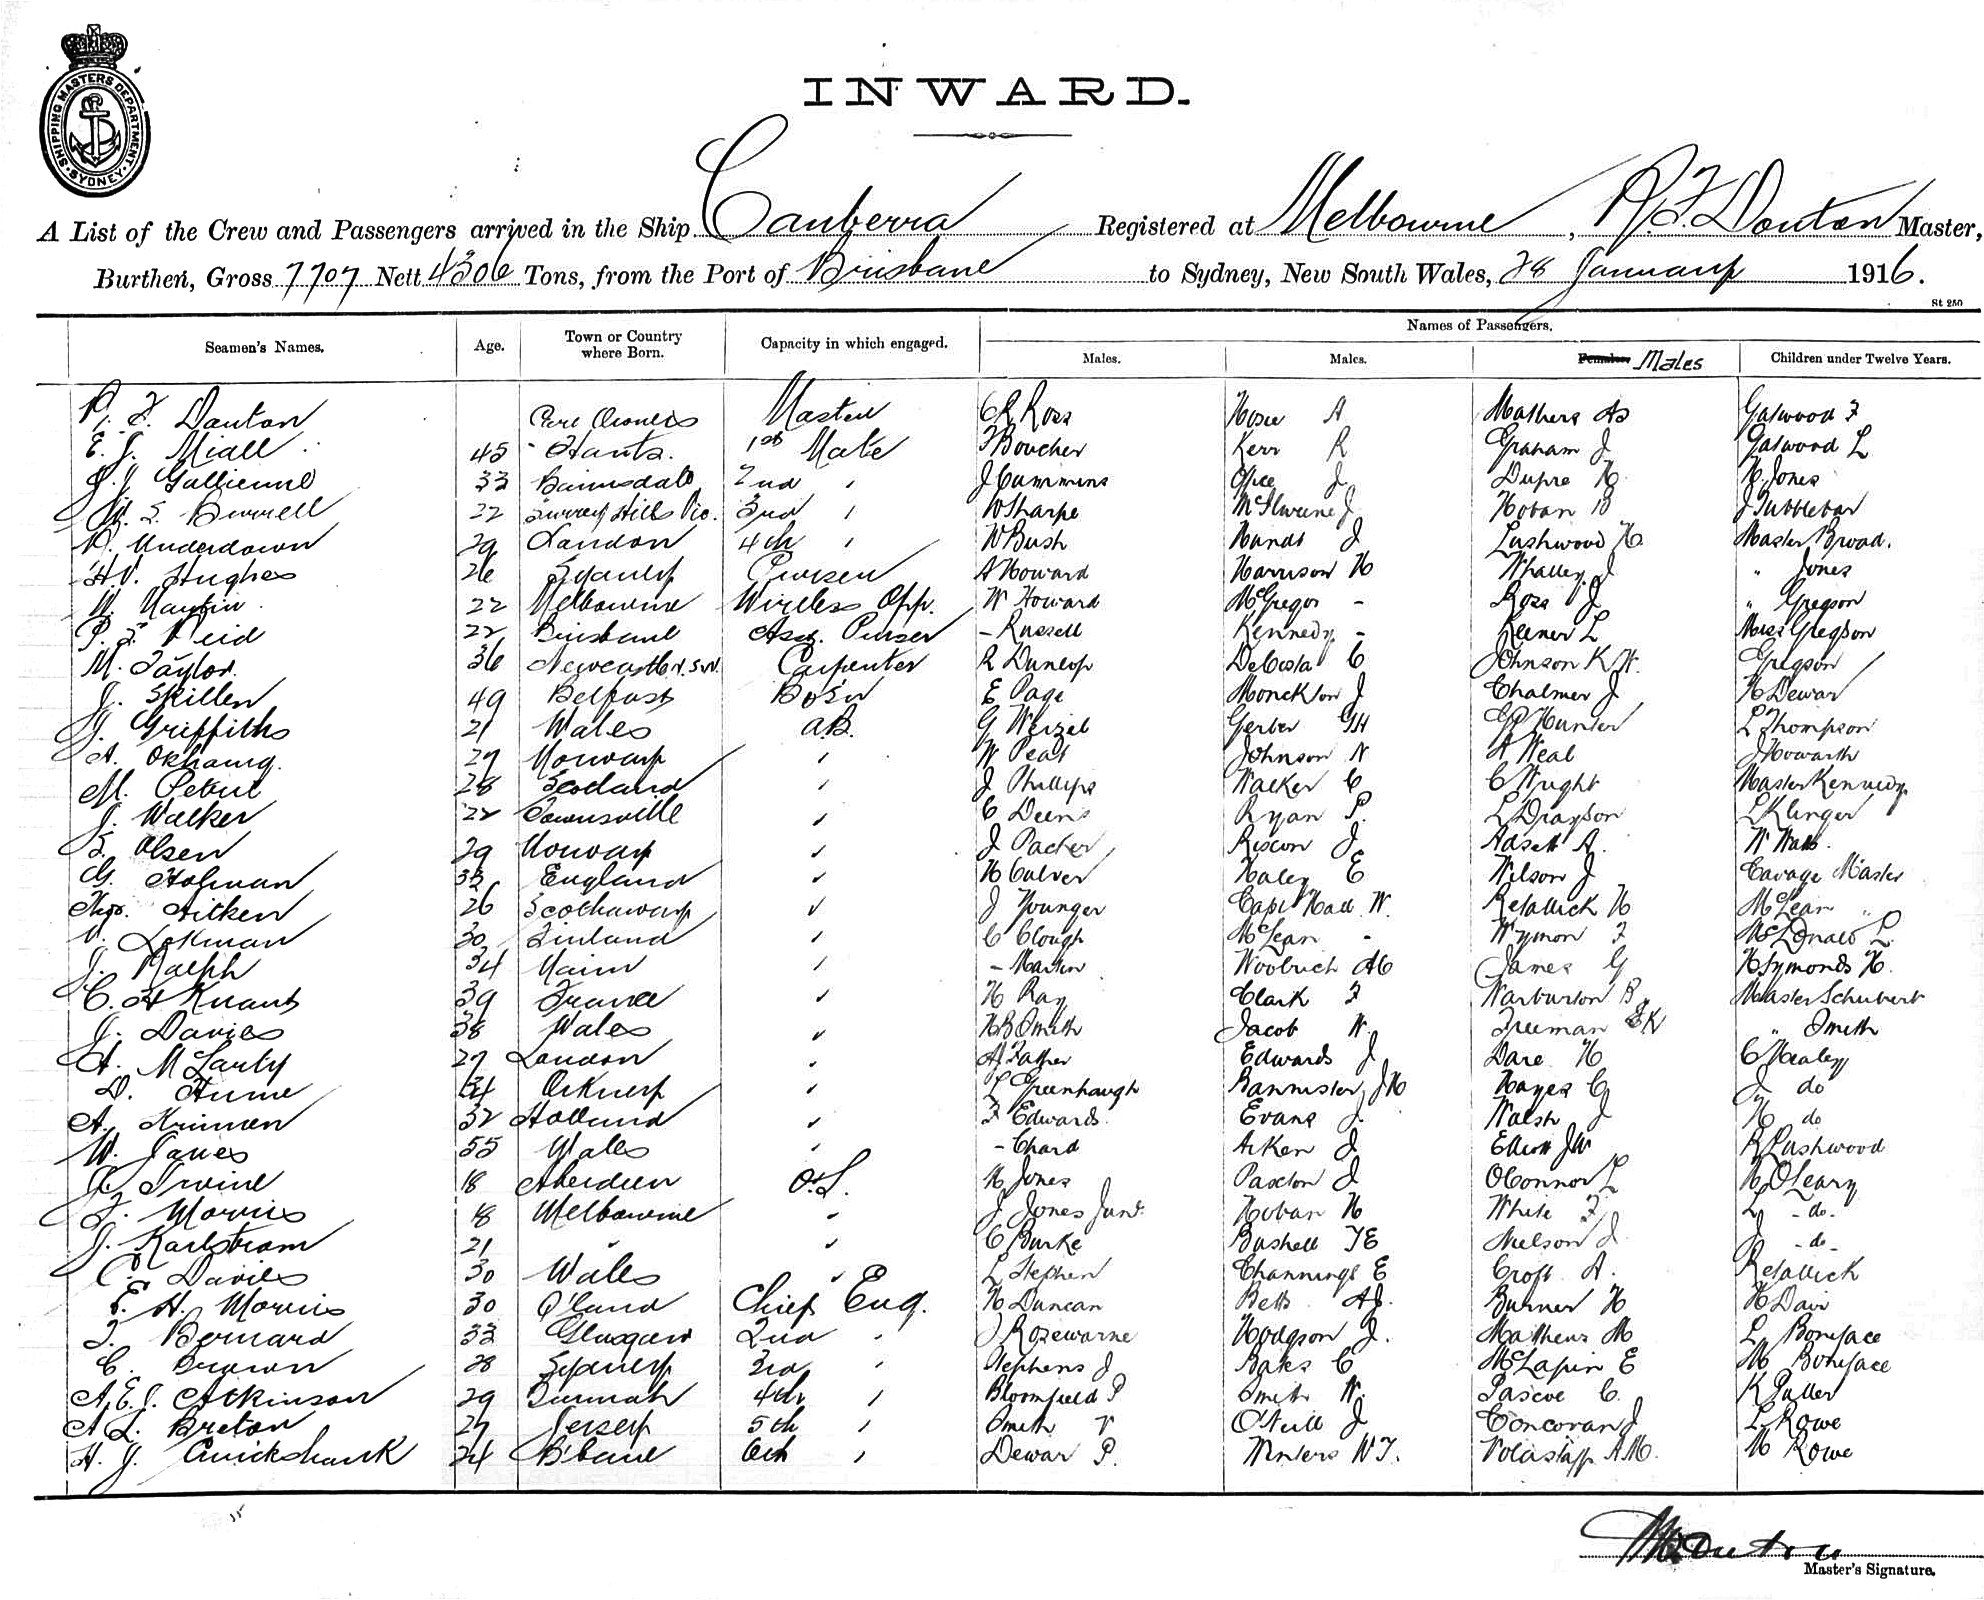 SHIPPING MASTERS DEPARTMENT · SYDNEY ·
INWARD.
A List of the Crew and Passengers arrived in the Ship Canberra Registered at Melbourne, R. F. Douton Master,
Burthen, Gross 7707 Nett 4306 Tons, from the Port of Brisbane to Sydney, New South Wales, 28 January 1916.
St 250
Names of Passengers.
Seamen's Names. Age. Town or Country where Born. Capacity in which engaged. Males. Males. Females. Males Children under Twelve Years.
Master C R Ross Hosie A Mathers As Gatwood F
E. J. Miall 45 Hants. 1st Mate F Boucher Kerr R Graham J Gatwood L
J. Gallienne 33 Bairnsdale 2nd " J Cummins Opie J Dupre H. H. Jones
W. S. Burrell 22 Surrey Hills Vic. 3rd " W Sharpe McIlwrine J Hoban B J Tubbleton
R. Underdown 29 London 4th " W Bush Hands J Lushwood H. Master Broad.
H.V. Hughes 26 Sydney Purser A Howard Harrison H Whalley J " Jones
W. Martin 22 Melbourne Wireless Opp. W Howard McGregor - Ross J " Gregson
P. F. Reid 22 Brisbane Ass. Purser - Russell Kennedy - Keener L Miss Gregson
M. Taylor. 36 Newcastle N.S.W. Carpenter R Dunlop DeCosta C Johnson K W. Gregson
J. Skillen 49 Belfast Bo'sn E Page Monckton J Chalmer J H Dewar
J. Griffiths 21 Wales A.B. G Weizel Gerber GH Hunter L Thompson
A. 27 Norway " W Peat Johnson N A Neal J Howarth
M. Petrie 28 Scotland " J Phillips Walker C C Wright Master Kennedy
J. Walker 22 Townsville " C Deens Ryan P. L Drayson L Klinger
S. Olsen 29 Norway " J Packer Riscon J. Adsett A. W Watts.
G. Holman 33 England " H Culver Haley E Wilson J Cavage Master
Thos. Aitken 26 " J Younger Capt Hall W. Retallick H McLean "
V. Lokman 30 Finland " C Clough McLean - Wymon F McDonald L
J. Ralph 34 " - Martin Woolrich AC James G H Symonds H.
C. H Knant 39 France " H Ray Clark F Warburton B Master Schubert
J. Davies 38 Wales " H B Smith Jacob W. Freeman EK " Smith
A. McLarty 27 London " Edwards J Dare H C Healey
D. Hume 34 Orkney " L Greenhaugh Bannister, J H Hayes C J do
A. Krimen 32 Holland " F Edwards. Evans J. Walsh J H do
W. Janes 55 Wales " - Chard Aiken J Elliott JW R Lushwood
J. Irvine 18 Aberdeen O.S. H Jones Paxton J OConnor L H OLeary
F. Morris 18 Melbourne " J Jones Junr. Hoban H White F. L - do -
J. Karlstrom 21 " " C Burke Bushell TE Neilson J J - do -
C. Davies 30 Wales " L Stephen Channings E Croft A. Retallick
E. H. Morris 30 Q'land Chief Eng. H Duncan Betts AJ. Burner H H Dair
J. Bernard 33 Glasgow 2nd " J Rosewarne Hodgson J. Mathews M L Boniface
C. Brown 28 Sydney 3rd " Stephens J Baks C McLapin E M Boniface
A. E. J. Atkinson 29 Burmah 4th " Bloomfield P Smith W. Pascoe C. K Puller
A L. Breton 27 Jersey 5th " Smith V O'Neill J Concoran J L Rowe
H. J. Cruickshank 24 B'bane 6th " Dewar P. Winters W T. A M. M Rowe
Master's Signature.